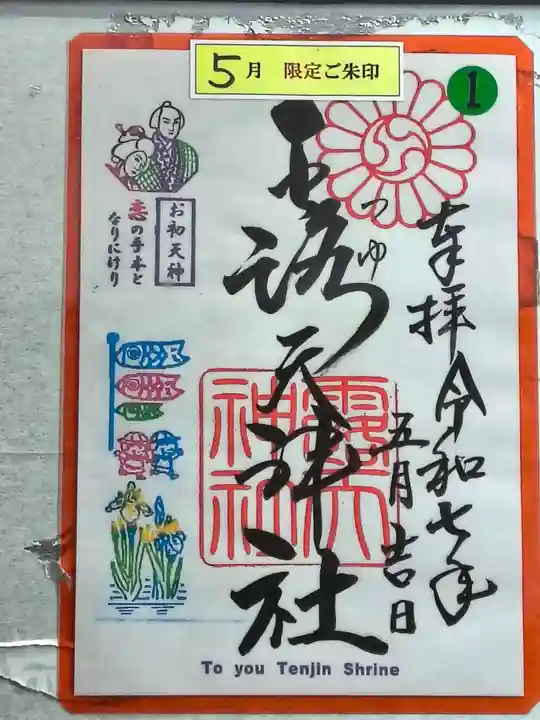 5月 限定ご朱印
1
奉拝 令和七年
五月吉日
露天神社
つゆ
露天神社
お初天神
恋の手本と
なりにけり
To you Tenjin Shrine